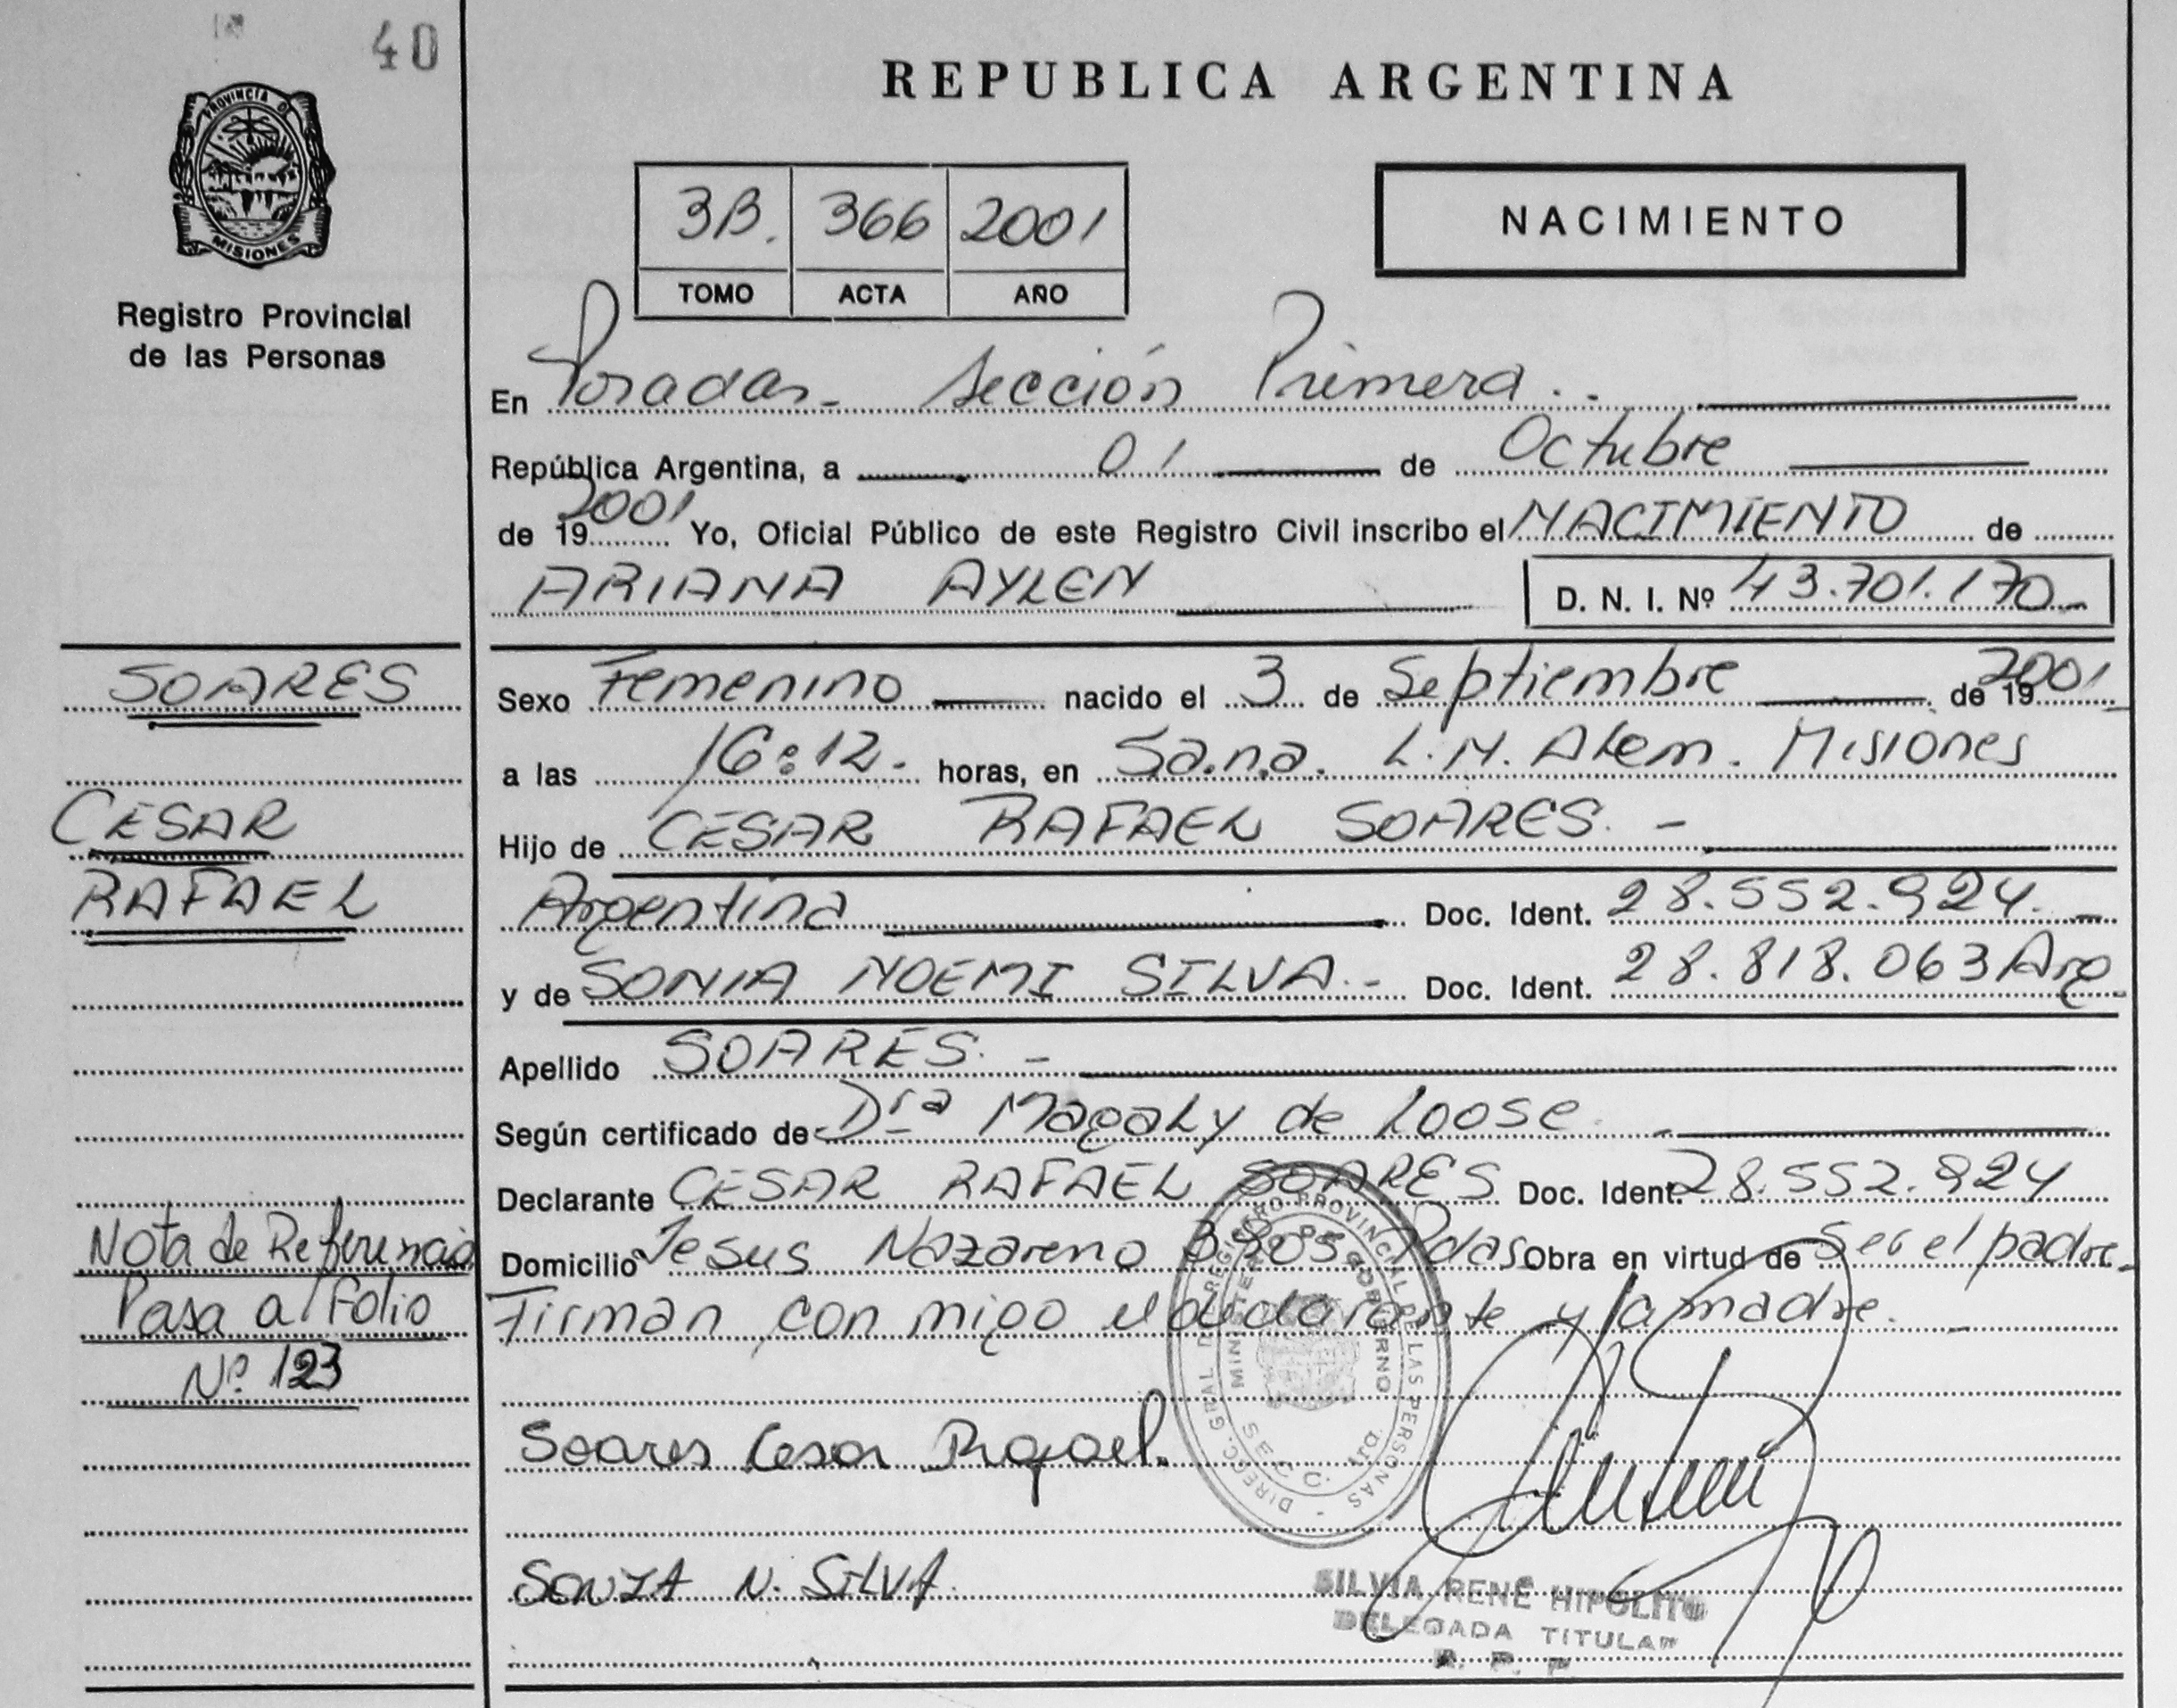 40
REPUBLICA ARGENTINA
PROVINCIA DE
MISIONES
Registro Provincial
de las Personas
3B. 366 2001
TOMO ACTA AÑO
NACIMIENTO
En Posadas - Sección Primera . .
República Argentina, a 01 de Octubre
de 19 2001 Yo, Oficial Público de este Registro Civil inscribo el NACIMIENTO de
ARIANA AYLEN D. N. I. Nº 43.701.170-
SOARES
Sexo Femenino nacido el 3 de Septiembre de 19 2001
a las 16:12. horas, en Sa.n.a. L.N. Alem. Misiones
CESAR
Hijo de CESAR RAFAEL SOARES. -
RAFAEL
Argentina Doc. Ident. 28.552.924. -
y de SONIA NOEMI SILVA.- Doc. Ident. 28.818.063 Arg.
Apellido SOARES. -
Según certificado de Drª Magaly de Loose. -
Declarante CESAR RAFAEL SOARES Doc. Ident. 28.552.924
Nota de Referencia
Domicilio Jesus Nazareno 3805 Pdas Obra en virtud de Ser el padre.
Pasa al Folio
Firman con migo el declarante y la madre. -
Nº 123
Soares Cesar Rafael.
DIRECC. GRAL DEL REGISTRO PROVINCIAL DE LAS PERSONAS -
MINISTERIO DE GOBIERNO
SECC. 1ra.
SONIA N. SILVA.
SILVIA RENE HIPOLITO
DELEGADA TITULAR
R. P. P.